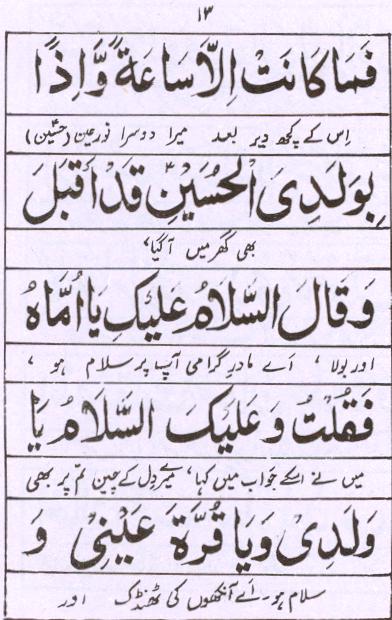 ۱۳
فَمَا كَانَتْ اِلَّا سَاعَةً وَّاِذًا
اِس کے کچھ دیر بعد میرا دوسرا نورِ عین (حسینؑ)
بِوَلَدِيَ الْحُسَيْنِؑ قَدْ اَقْبَلَ
بھی گھر میں آگیا،
وَقَالَ السَّلَامُ عَلَيْكِ يَا اُمَّاهُ
اور بولا، اے مادرِ گرامی آپ پر سلام ہو،
فَقُلْتُ وَعَلَيْكَ السَّلَامُ يَا
میں نے اسکے جواب میں کہا، میرے دِل کے چین تم پر بھی
وَلَدِيْ وَيَا قُرَّةَ عَيْنِيْ وَ
سلام ہو۔ اے آنکھوں کی ٹھنڈک اور